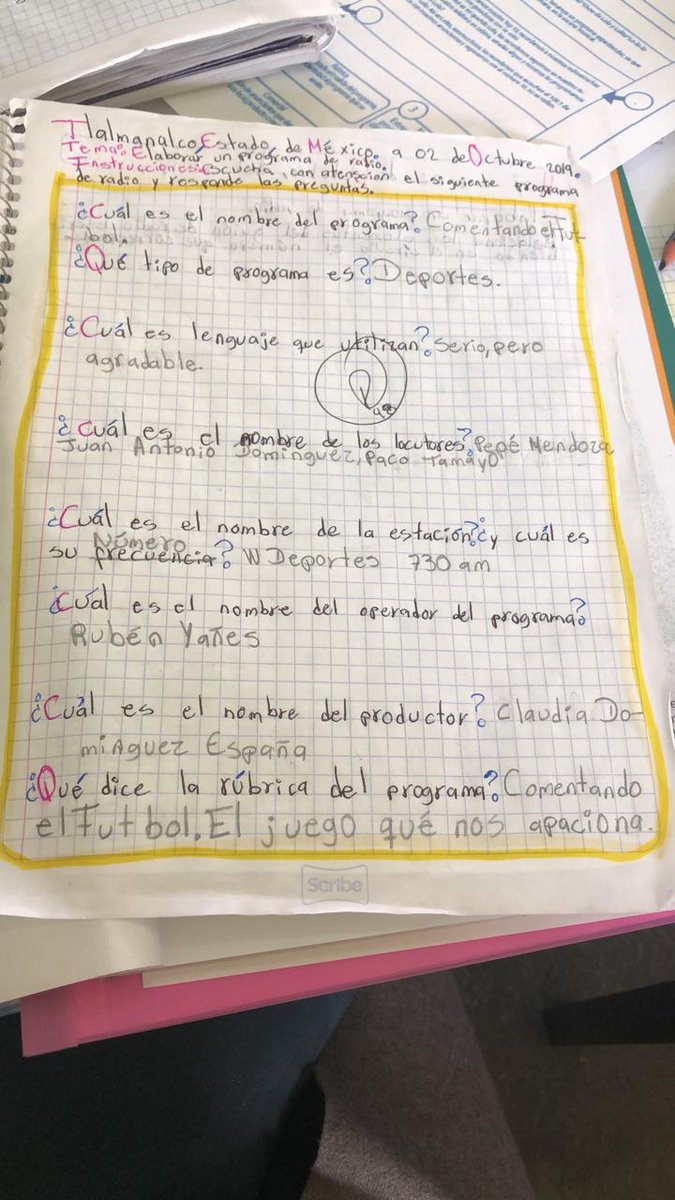 Tlalmapalco, Estado de México, a 02 de Octubre 2019.
Tema: Elaborar un programa de radio.
Instrucciones: Escucha con atención el siguiente programa
de radio y responde las preguntas.
¿Cuál es el nombre del programa? Comentando el Fut
bol.
¿Qué tipo de programa es? Deportes.
¿Cuál es lenguaje que utilizan? Serio, pero
agradable.
¿Cuál es el nombre de los locutores? Pepé Mendoza
Juan Antonio Dominguez, Paco Tamayo
¿Cuál es el nombre de la estación? ¿y cuál es
Número
su frecuencia? W Deportes 730 am
¿Cuál es el nombre del operador del programa?
Rubén Yañes
¿Cuál es el nombre del productor? Claudia Do-
minguez España
¿Qué dice la rúbrica del programa? Comentando
el Futbol. El juego qué nos apaciona.
Scribe